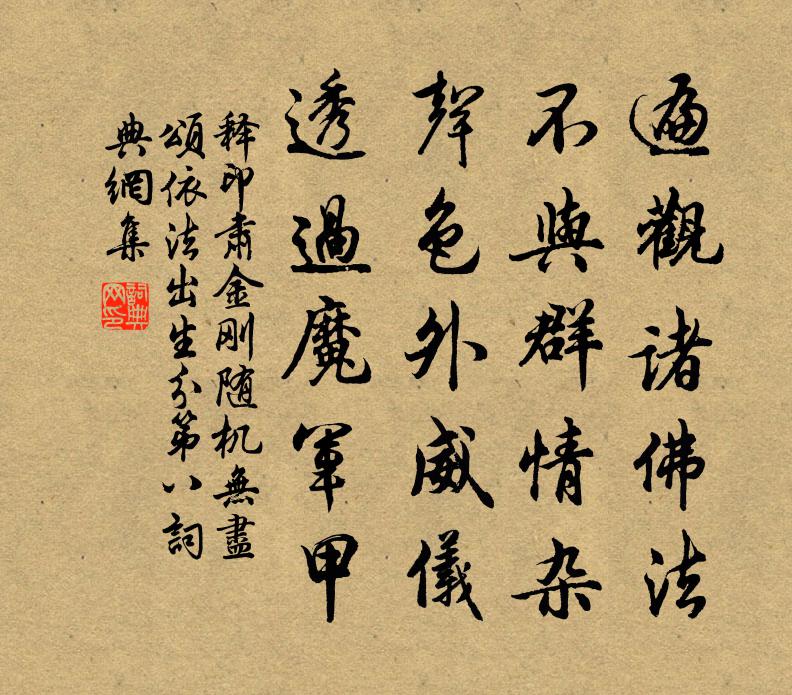 遍觀諸佛法
不與群情杂
聲色外威儀
透過魔軍甲
释印肃金刚随机無盡
頌依法出生分第八詞
典網集
詞典
网印